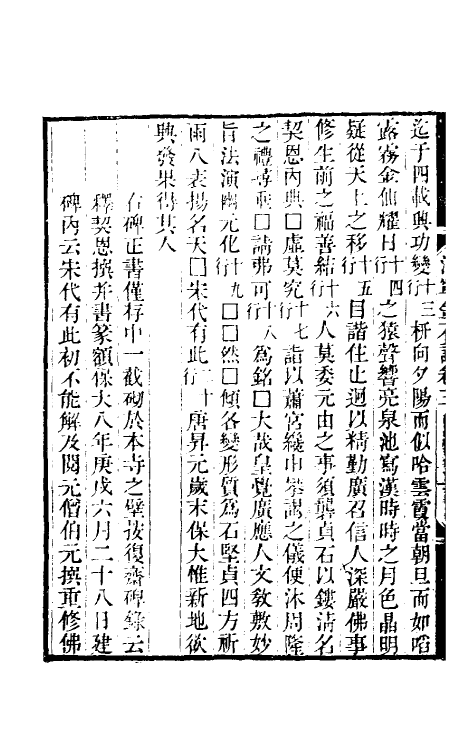 迄于四載興功變行十三枅向夕陽而似哈雲霞當朝旦而如啗
露霧金仙耀日行十四之猿聲響亮泉池寫漢時時之月色晶明
疑從天上之移行十五目諧住止迥以精勤廣召信人深嚴佛事
修生前之福善結行十六人莫委元由之事須龔貞石以鏤清名
契恩內典□虛莫究行十七詣以蕭宮纔申㕘謁之儀便沐周隆
之禮尋輒□請弗可行十八為銘□大哉皇覺廣應人文教敷妙
旨法演幽元化行十九□□然□傾各變形質為石堅貞四方祈
雨八表揚名天□宋代有此行二十唐昇元歲末保大惟新地欲
興發果得其人
右碑正書僅存中一截砌於本寺之壁按復齋碑錄云
釋契恩撰并書篆額保大八年庚戌六月二十八日建
碑內云宋代有此初不能解及閱元僧伯元撰重修佛